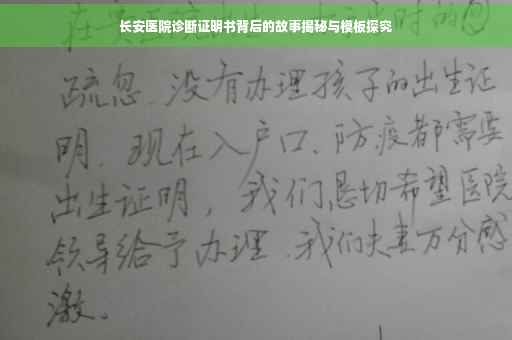 长安医院诊断证明书背后的故事揭秘与模板探究
疏忽、没有办理孩子的出生证
明、现在入户口、防疫都需要
出生证明，我们恳切希望医院
领导给予办理、我们夫妻万分感
激。